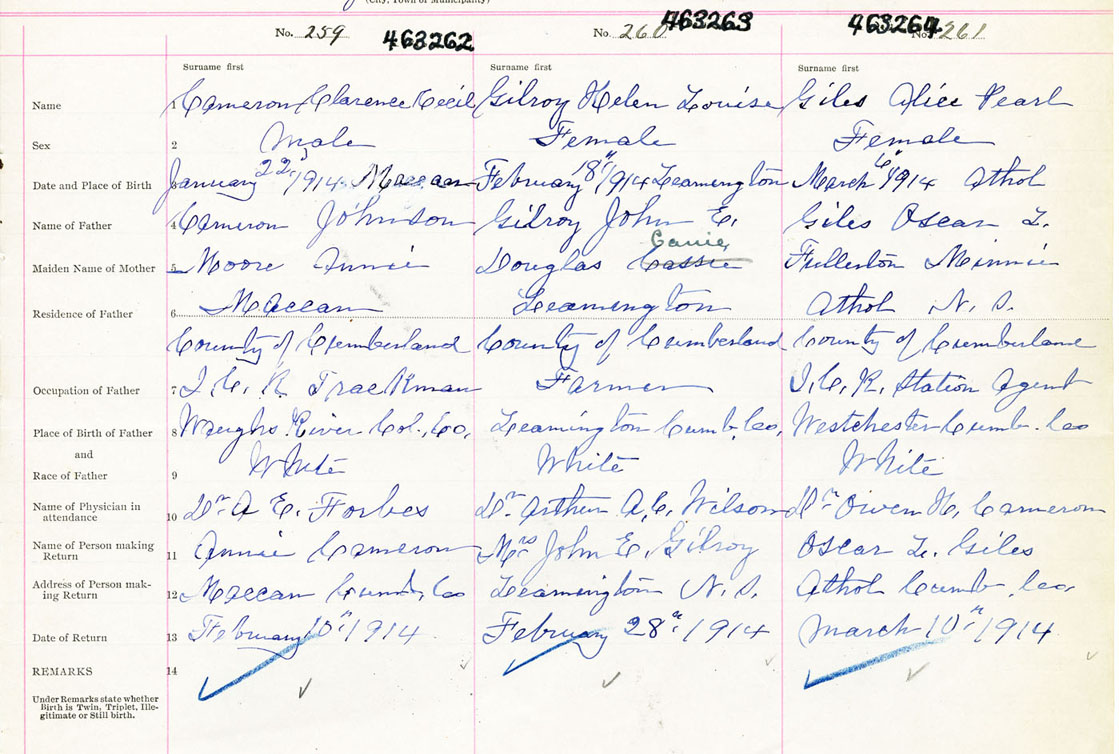 (City, Town or Municipality)
No. 259 463262 No. 260 463263 463264 No. 261
Surname first Surname first Surname first
Name 1 Cameron Clarence Cecil Gilroy Helen Louise Giles Alice Pearl
Sex 2 Male Female Female
Date and Place of Birth 3 January 22nd 1914 Maccan February 18th 1914 Leamington March 6th 1914 Athol
Name of Father 4 Cameron Johnson Gilroy John E. Giles Oscar L.
Carrie
Maiden Name of Mother 5 Moore Annie Douglas Cassie Fullerton Minnie
Residence of Father 6 Maccan Leamington Athol N.S.
County of Cumberland County of Cumberland County of Cumberland
Occupation of Father 7 I.C.R. Trackman Farmer I.C.R. Station Agent
Place of Birth of Father 8 River Col. Co. Leamington Cumb. Co. Westchester Cumb. Co
and
Race of Father 9 White White White
Name of Physician in
attendance 10 Dr A E. Forbes Dr Arthur A.C. Wilson Dr Owen H. Cameron
Name of Person making
Return 11 Annie Cameron Mrs John E. Gilroy Oscar L. Giles
Address of Person mak-
ing Return 12 Maccan Cumb. Co Leamington N.S. Athol Cumb. Co.
Date of Return 13 February 10th 1914 February 28th 1914 March 10th 1914
REMARKS 14
Under Remarks state whether
Birth is Twin, Triplet, Ille-
gitimate or Still birth.